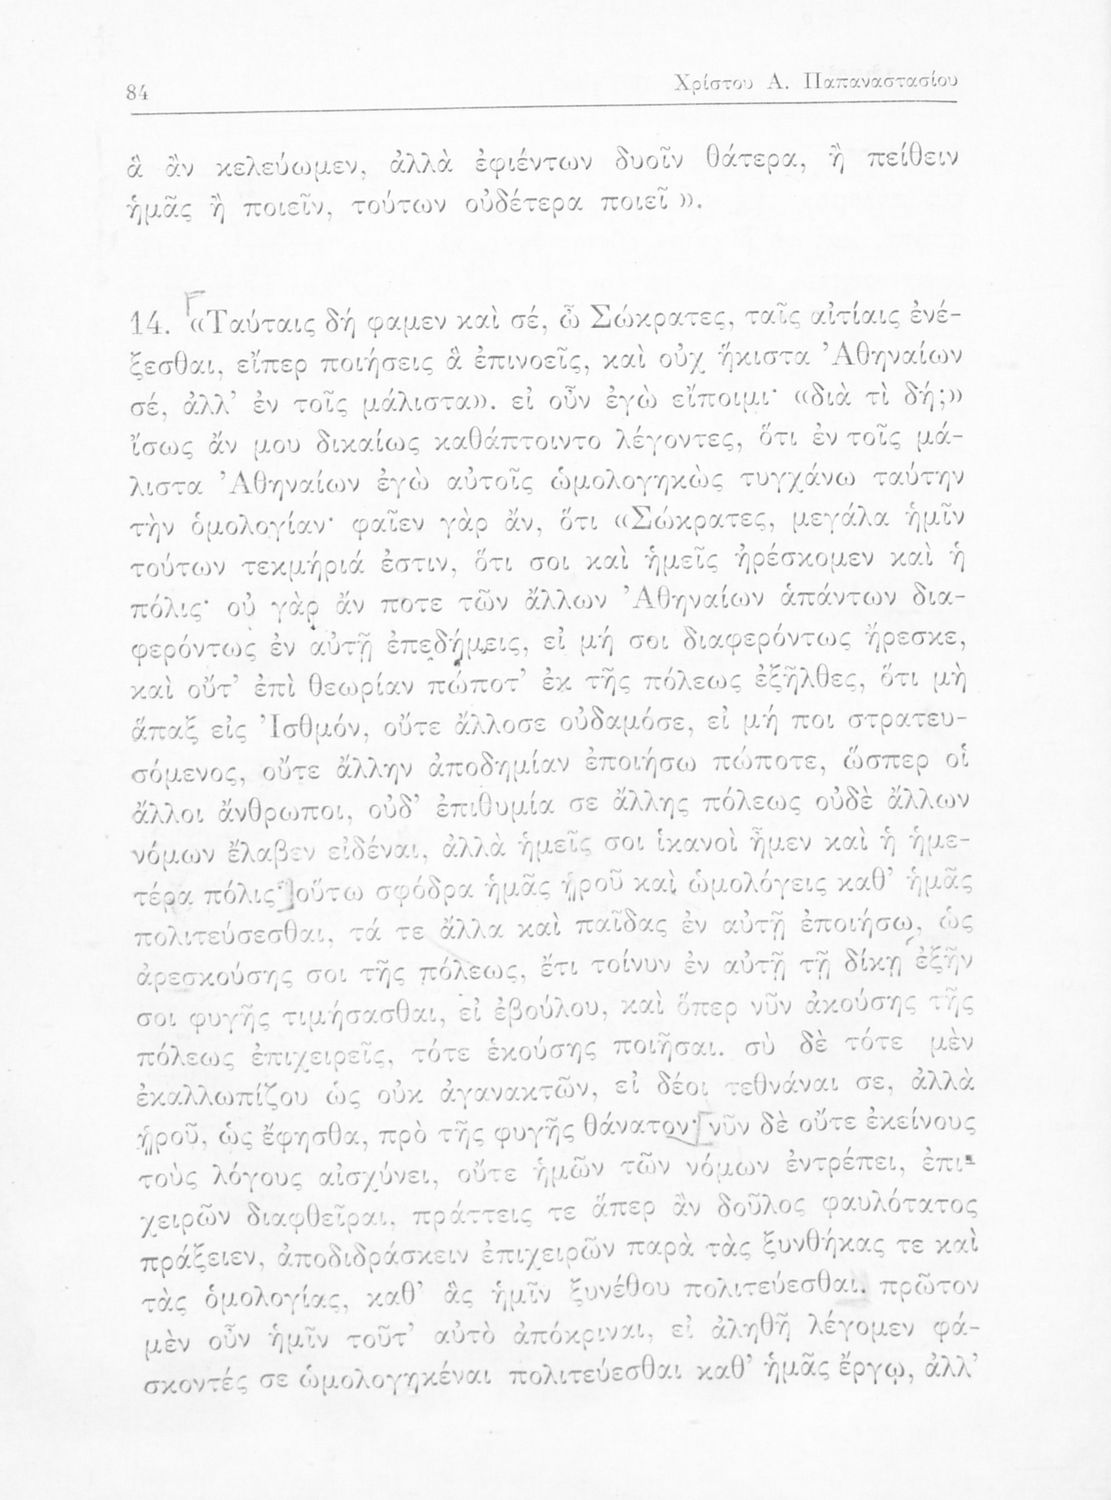 84
Χρίστου Α. Παπαναστασίου
ἃ ἂν κελεύωμεν, ἀλλὰ ἐφιέντων δυοῖν θάτερα, ἢ πείθειν
ἡμᾶς ἢ ποιεῖν, τούτων οὐδέτερα ποιεῖ».
14. «Ταύταις δή φαμεν καὶ σέ, ὦ Σώκρατες, ταῖς αἰτίαις ἐνέ-
ξεσθαι, εἴπερ ποιήσεις ἃ ἐπινοεῖς, καὶ οὐχ ἥκιστα Ἀθηναίων
σέ, ἀλλ’ ἐν τοῖς μάλιστα». εἰ οὖν ἐγὼ εἴποιμι· «διὰ τὶ δή;»
ἴσως ἄν μου δικαίως καθάπτοιντο λέγοντες, ὅτι ἐν τοῖς μά-
λιστα Ἀθηναίων ἐγὼ αὐτοῖς ὡμολογηκὼς τυγχάνω ταύτην
τὴν ὁμολογίαν· φαῖεν γὰρ ἄν, ὅτι «Σώκρατες, μεγάλα ἡμῖν
τούτων τεκμήριά ἐστιν, ὅτι σοι καὶ ἡμεῖς ἠρέσκομεν καὶ ἡ
πόλις· οὐ γὰρ ἄν ποτε τῶν ἄλλων Ἀθηναίων ἁπάντων δια-
φερόντως ἐν αὐτῇ ἐπεδήμεις, εἰ μή σοι διαφερόντως ἤρεσκε,
καὶ οὔτ’ ἐπὶ θεωρίαν πώποτ’ ἐκ τῆς πόλεως ἐξῆλθες, ὅτι μὴ
ἅπαξ εἰς Ἰσθμόν, οὔτε ἄλλοσε οὐδαμόσε, εἰ μή ποι στρατευ-
σόμενος, οὔτε ἄλλην ἀποδημίαν ἐποιήσω πώποτε, ὥσπερ οἱ
ἄλλοι ἄνθρωποι, οὐδ’ ἐπιθυμία σε ἄλλης πόλεως οὐδὲ ἄλλων
νόμων ἔλαβεν εἰδέναι, ἀλλὰ ἡμεῖς σοι ἱκανοὶ ἦμεν καὶ ἡ ἡμε-
τέρα πόλις· οὕτω σφόδρα ἡμᾶς ᾑροῦ καὶ ὡμολόγεις καθ’ ἡμᾶς
πολιτεύσεσθαι, τά τε ἄλλα καὶ παῖδας ἐν αὐτῇ ἐποιήσω, ὡς
ἀρεσκούσης σοι τῆς πόλεως, ἔτι τοίνυν ἐν αὐτῇ τῇ δίκῃ ἐξῆν
σοι φυγῆς τιμήσασθαι, εἰ ἐβούλου, καὶ ὅπερ νῦν ἀκούσης τῆς
πόλεως ἐπιχειρεῖς, τότε ἑκούσης ποιῆσαι. σὺ δὲ τότε μὲν
ἐκαλλωπίζου ὡς οὐκ ἀγανακτῶν, εἰ δέοι τεθνάναι σε, ἀλλὰ
ᾑροῦ, ὡς ἔφησθα, πρὸ τῆς φυγῆς θάνατον· νῦν δὲ οὔτε ἐκείνους
τοὺς λόγους αἰσχύνει, οὔτε ἡμῶν τῶν νόμων ἐντρέπει, ἐπι-
χειρῶν διαφθεῖραι, πράττεις τε ἅπερ ἂν δοῦλος φαυλότατος
πράξειεν, ἀποδιδράσκειν ἐπιχειρῶν παρὰ τὰς ξυνθήκας τε καὶ
τὰς ὁμολογίας, καθ’ ἃς ἡμῖν ξυνέθου πολιτεύεσθαι. πρῶτον
μὲν οὖν ἡμῖν τοῦτ’ αὐτὸ ἀπόκριναι, εἰ ἀληθῆ λέγομεν φά-
σκοντές σε ὡμολογηκέναι πολιτεύεσθαι καθ’ ἡμᾶς ἔργῳ, ἀλλ’